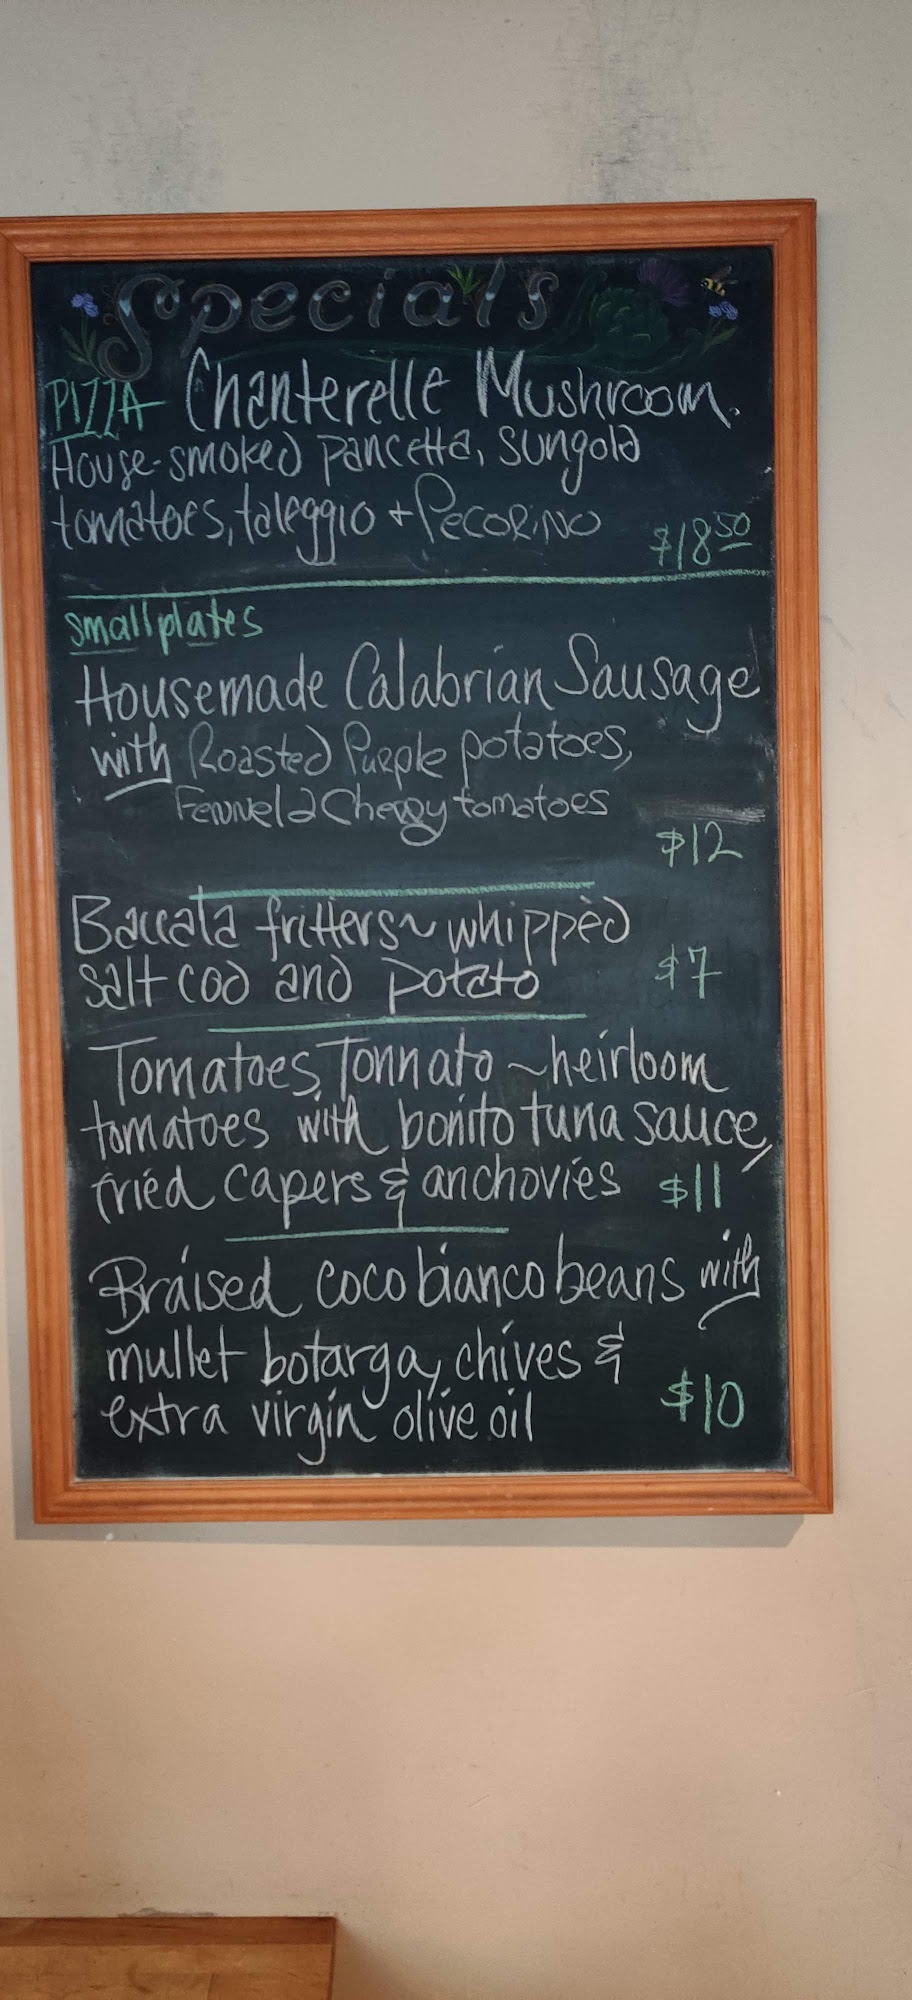 Specials
PIZZA Chanterelle Mushroom.
House-smoked pancetta, sungold
tomatoes, taleggio + Pecorino $18.50
small plates
Housemade Calabrian Sausage
with Roasted Purple potatoes,
Fennel & Cherry tomatoes
$12
Baccala fritters ~ whipped
salt cod and potato $7
Tomatoes Tonnato ~ heirloom
tomatoes with bonito tuna sauce,
fried capers & anchovies $11
Braised coco bianco beans with
mullet botarga, chives &
extra virgin olive oil $10